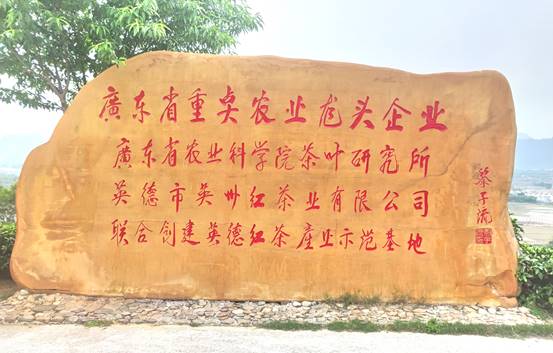 廣东省重点农业龙头企业
廣东省农业科学院茶叶研究所
英德市英州红茶业有限公司
联合创建英德红茶产业示范基地
黎子流